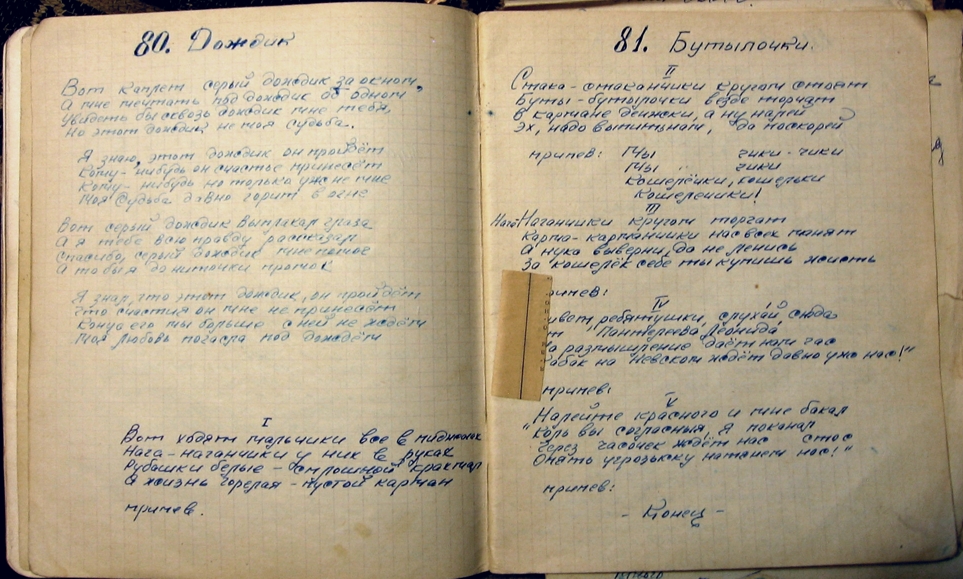 80. Дождик
Вот каплет серый дождик за окном,
А мне мечтать под дождик об одном
Увидеть бы сквозь дождик мне тебя,
Но этот дождик не моя судьба.
Я знаю, этот дождик он пройдёт
Кому-нибудь он счастье принесёт
Кому-нибудь но только уж не мне
Моя судьба давно горит в огне
Вот серый дождик выплакал глаза
А я тебе всю правду рассказал
Спасибо, серый дождик мне помог
А то бы я до ниточки промок
Я знал, что этот дождик, он пройдёт
Что счастия он мне не принесёт
Конца его мы больше с ней не ждём
Моя любовь погасла под дождём
I
Вот ходят мальчики все в пиджаках
Нага-наганчики у них в руках
Рубашки белые - сплошной крахмал
А жизнь горелая - пустой карман
припев.
81. Бутылочки.
II
Стака-стаканчики кругом стоят
Буты-бутылочки везде торчат
В кармане денежки, а ну налей
Эх, надо выпить нам, да поскорей
припев: Мы чики-чики
Мы чики
Кошелёчки, кошельки
Кошелёчики!
III
Наганчики кругом торчат
Карма-карманчики нас всех манят
А нука выверни, да не ленись
За кошелёк себе ты купишь жисть
рипев:
IV
ребятушки, слухай сюда
"Пантелеева Леонида
размышление даёт нам час
абак на Невском ждёт давно уже нас!"
припев:
V
"Налейте красного и мне бокал
Коль вы согласныя, я поканал
Через часочек ждёт нас стос
Опять угрозыску натянем нос!"
припев:
- Конец -